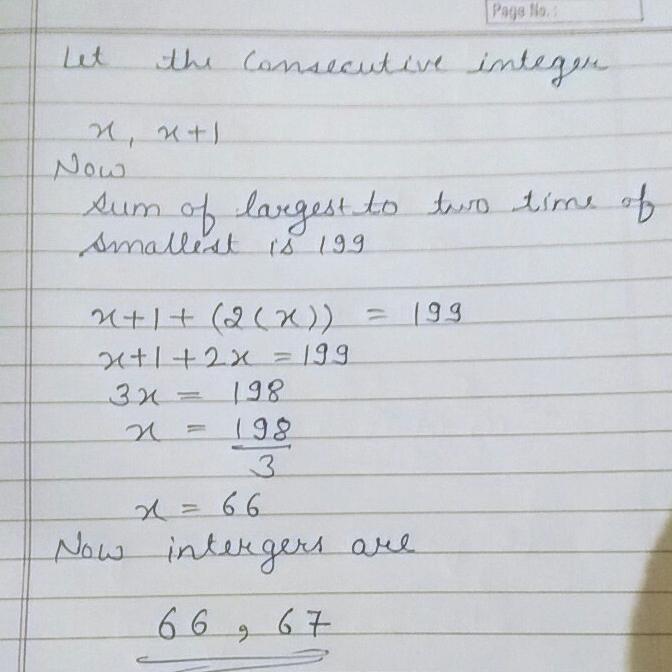 Page No.:
Let the Consecutive integer
x, x+1
Now
Sum of largest to two time of
smallest is 199
x+1+(2(x)) = 199
x+1+2x = 199
3x = 198
x = 198/3
x = 66
Now intergers are
66, 67